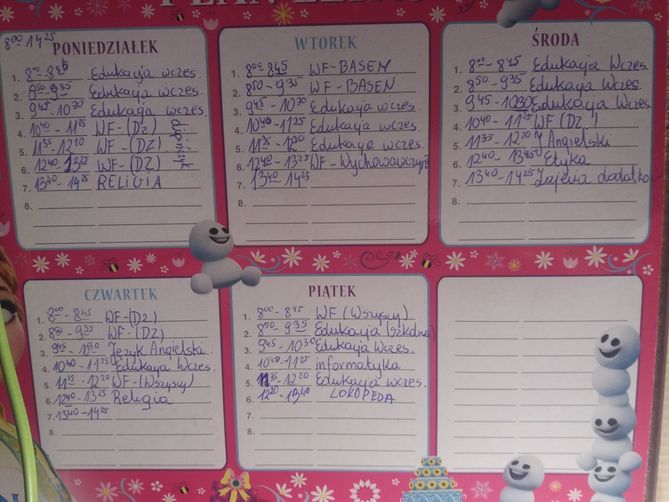 8⁰⁰ 14²⁵
PLAN LEKCJI
PONIEDZIAŁEK
1. 8⁰⁰-8⁴⁵ Edukacja wczes.
2. 8⁵⁰-9³⁵ Edukacja wczes.
3. 9⁴⁵-10³⁰ Edukacja wczes.
4. 10⁴⁰-11²⁵ WF-(Dz)
5. 11³⁵-12²⁰ WF-(DZ)
6. 12⁴⁰-13²⁵ WF-(DZ)
7. 13⁴⁰-14²⁵ RELIGIA
8.
WTOREK
1. 8⁰⁰-8⁴⁵ WF-BASEN
2. 8⁵⁰-9³⁵ WF-BASEN
3. 9⁴⁵-10³⁰ Edukacja wczes
4. 10⁴⁰-11²⁵ Edukacja wczes.
5. 11³⁵-12²⁰ Edukacja wczes.
6. 12⁴⁰-13²⁵ WF-Wychowawczyni
7. 13⁴⁰-14²⁵
8.
ŚRODA
1. 8⁰⁰-8⁴⁵ Edukacja Wczes.
2. 8⁵⁰-9³⁵ Edukacja Wczes.
3. 9⁴⁵-10³⁰ Edukacja Wczes
4. 10⁴⁰-11²⁵ WF (DZ.)
5. 11³⁵-12²⁰ Angielski
6. 12⁴⁰-13⁴⁵ Etyka
7. 13⁴⁰-14²⁵
8.
CZWARTEK
1. 8⁰⁰-8⁴⁵ WF-(Dz)
2. 8⁵⁰-9³⁵ WF-(DZ)
3. 9⁴⁵- Język Angielski.
4. 10⁴⁰-11²⁵ Edukacja Wczes.
5. 11³⁵-12²⁰ WF-(Wszyscy)
6. 12⁴⁰-13²⁵ Religia
7. 13⁴⁰-14²⁵
8.
PIĄTEK
1. 8⁰⁰-8⁴⁵ WF (Wszyscy)
2. 8⁵⁰-9³⁵ Edukacja (szkolna)
3. 9⁴⁵-10³⁰ Edukacja Wczes.
4. 10⁴⁰-11²⁵ informatyka
5. 11³⁵-12²⁰ Edukacja wczes.
6. 12²⁰-13⁴⁰ LOKOPEDA
8.